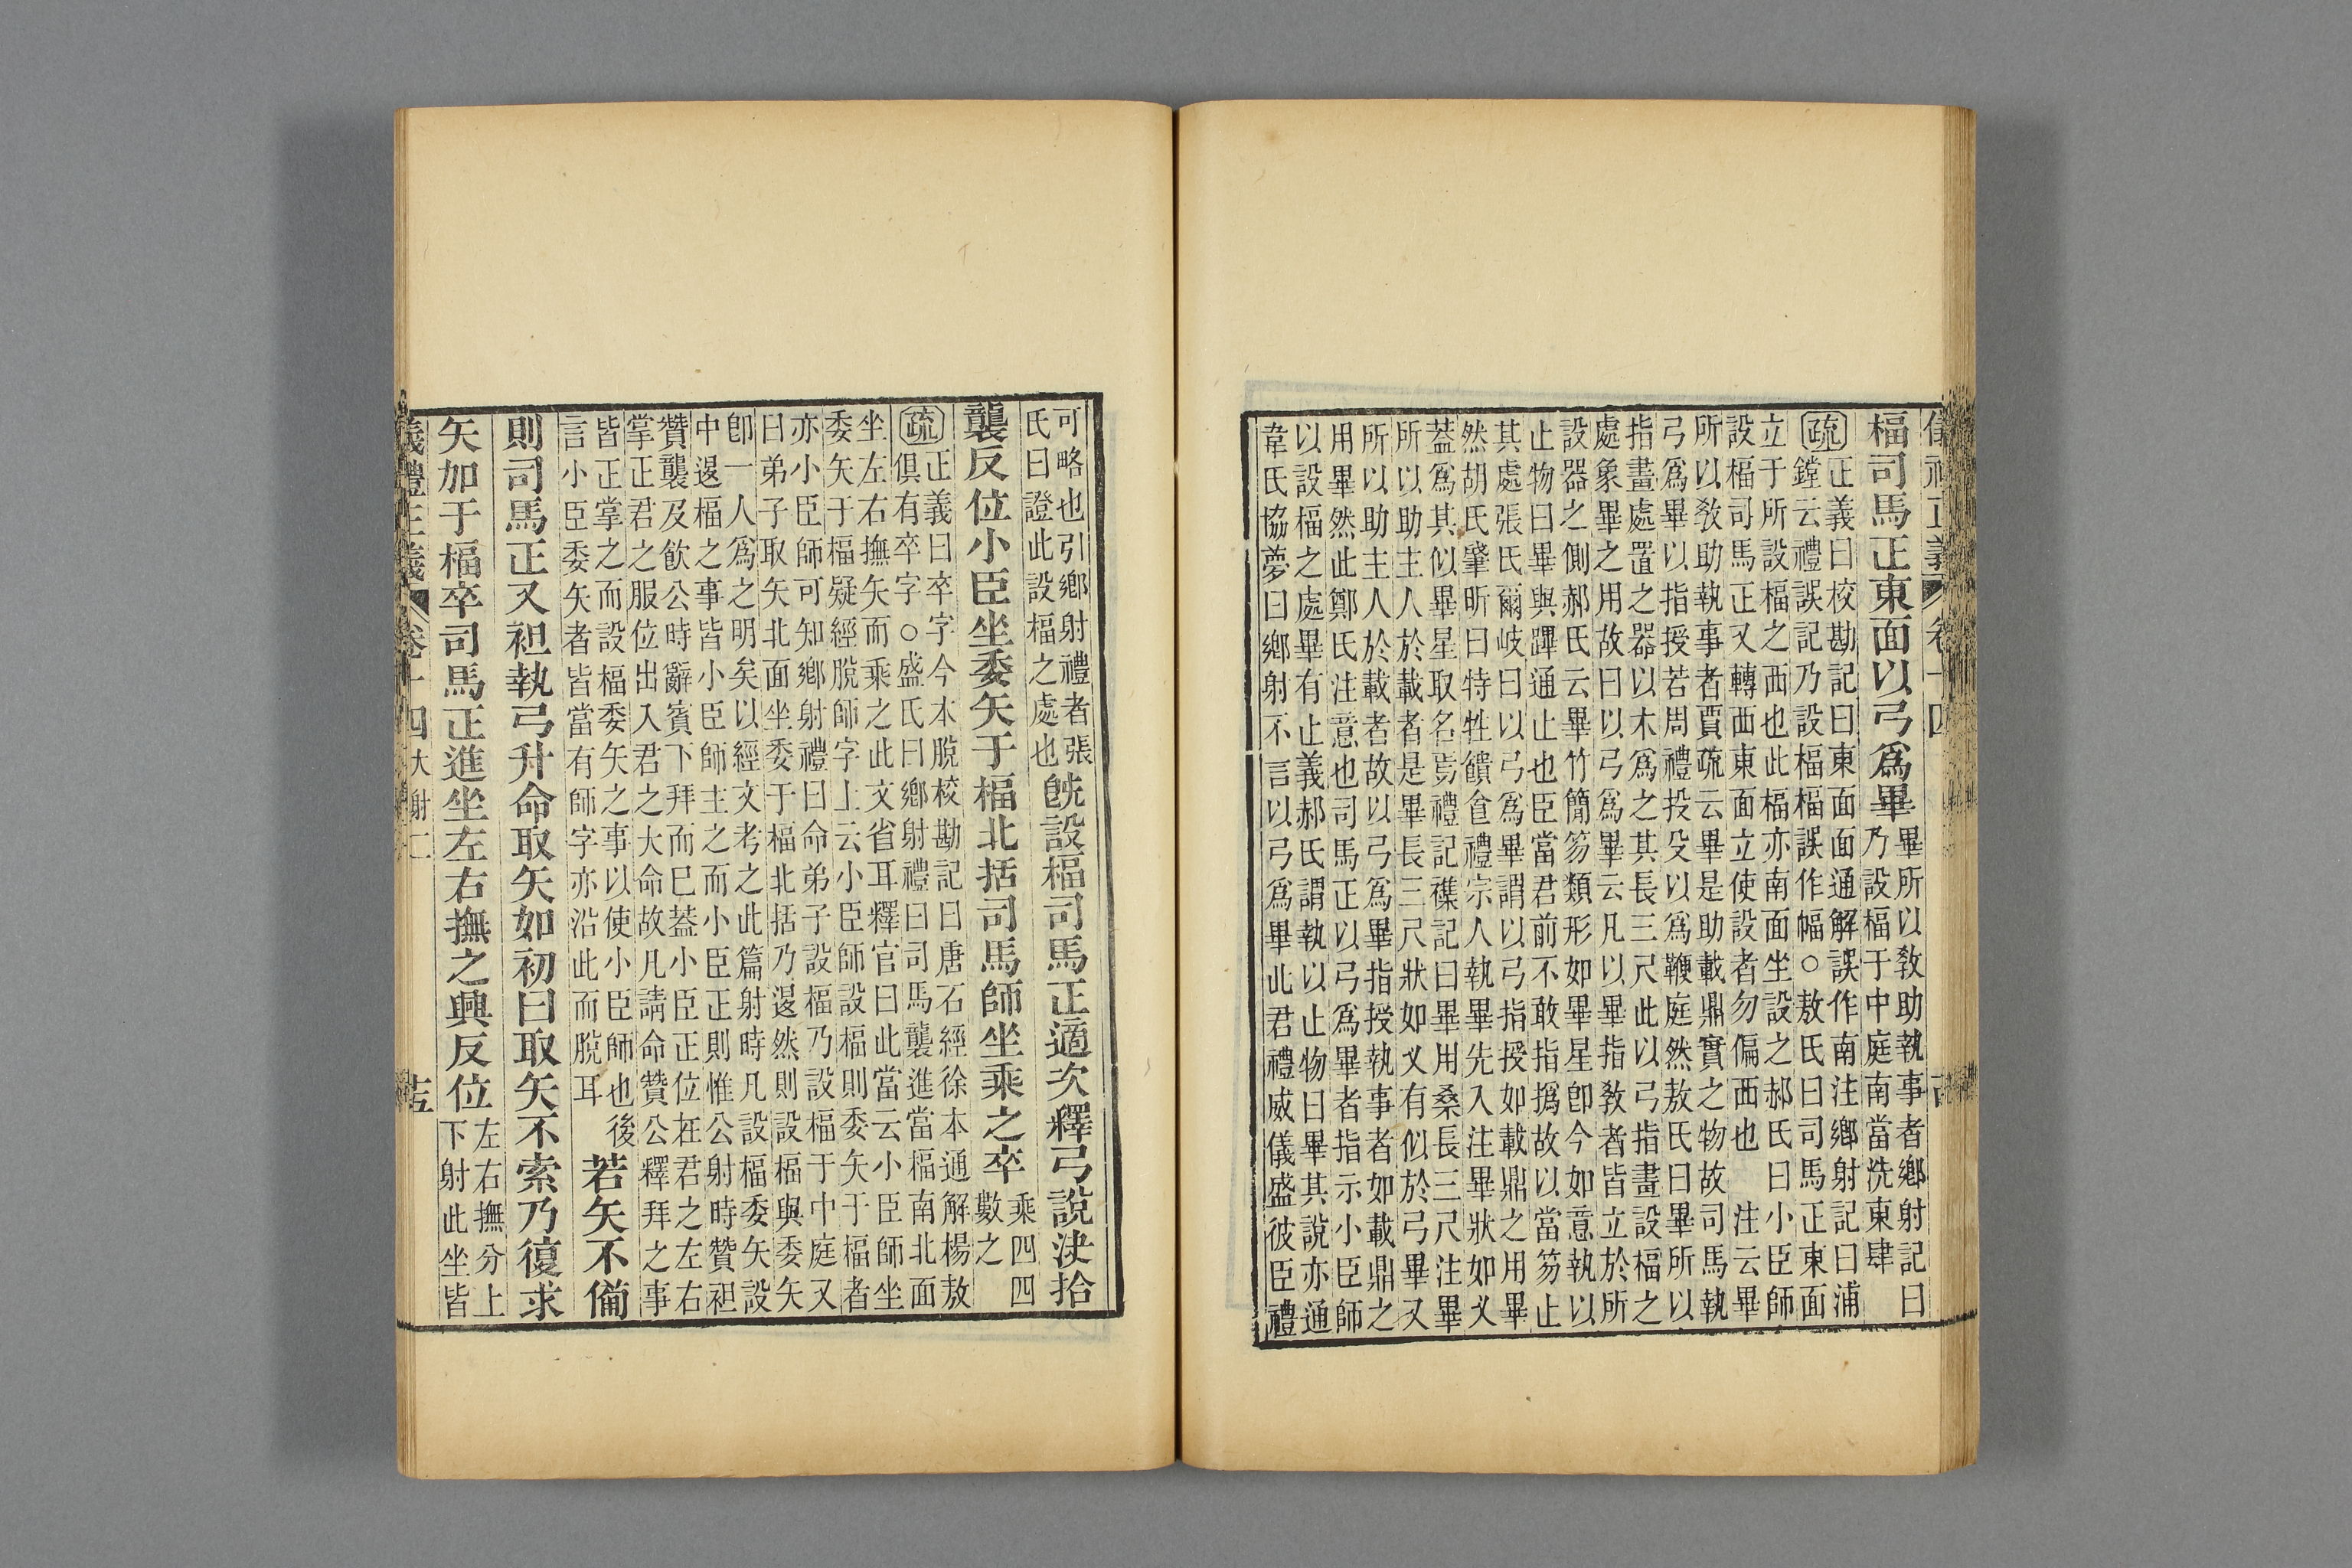 儀禮正義 卷十四
楅司馬正東面以弓爲畢
畢所以敎助執事者鄉射記曰
乃設楅于中庭南當洗東肆
疏
正義曰校勘記曰東面面通解誤作南注鄉射記曰浦
鏜云禮誤記乃設楅楅誤作幅○敖氏曰司馬正東面
立于所設楅之西也此楅亦南面坐設之郝氏曰小臣師
設楅司馬正又轉西東面立使設者勿偏西也 注云畢
所以敎助執事者賈疏云畢是助載鼎實之物故司馬執
弓爲畢以指授若周禮投殳以爲鞭庭然敖氏曰畢所以
指畫處置之器以木爲之其長三尺此以弓指畫設楅之
處象畢之用故曰以弓爲畢云凡以畢指敎者皆立於所
設器之側郝氏云畢竹簡笏類形如畢星卽今如意執以
止物曰畢與蹕通止也臣當君前不敢指撝故以當笏止
其處張氏爾岐曰以弓爲畢謂以弓指授如載鼎之用畢
然胡氏肇昕曰特牲饋食禮宗人執畢先入注畢狀如乂
葢爲其似畢星取名焉禮記襍記曰畢用桑長三尺注畢
所以助主人於載者是畢長三尺狀如乂有似於弓畢又
所以助主人於載者故以弓爲畢指授執事者如載鼎之
用畢然此鄭氏注意也司馬正以弓爲畢者指示小臣師
以設楅之處畢有止義郝氏謂執以止物曰畢其說亦通
韋氏協夢曰鄉射不言以弓爲畢此君禮威儀盛彼臣禮
可略也引鄉射禮者張
氏曰證此設楅之處也
旣設楅司馬正適次釋弓說決拾
襲反位小臣坐委矢于楅北括司馬師坐乘之卒
乘四四
數之
疏
正義曰卒字今本脫校勘記曰唐石經徐本通解楊敖
俱有卒字○盛氏曰鄉射禮曰司馬襲進當楅南北面
坐左右撫矢而乘之此文省耳釋官曰此當云小臣師坐
委矢于楅疑經脫師字上云小臣師設楅則委矢于楅者
亦小臣師可知鄉射禮曰命弟子設楅乃設楅于中庭又
曰弟子取矢北面坐委于楅北括乃退然則設楅與委矢
卽一人爲之明矣以經文考之此篇射時凡設楅委矢設
中退楅之事皆小臣師主之而小臣正則惟公射時贊袒
贊襲及飮公時辭賓下拜而巳葢小臣正位在君之左右
掌正君之服位出入君之大命故凡請命贊公釋拜之事
皆正掌之而設楅委矢之事以使小臣師也後
言小臣委矢者皆當有師字亦沿此而脫耳
若矢不備
則司馬正又袒執弓升命取矢如初曰取矢不索乃復求
矢加于楅卒司馬正進坐左右撫之興反位
左右撫分上
下射此坐皆
儀禮正義 卷十四 大射二